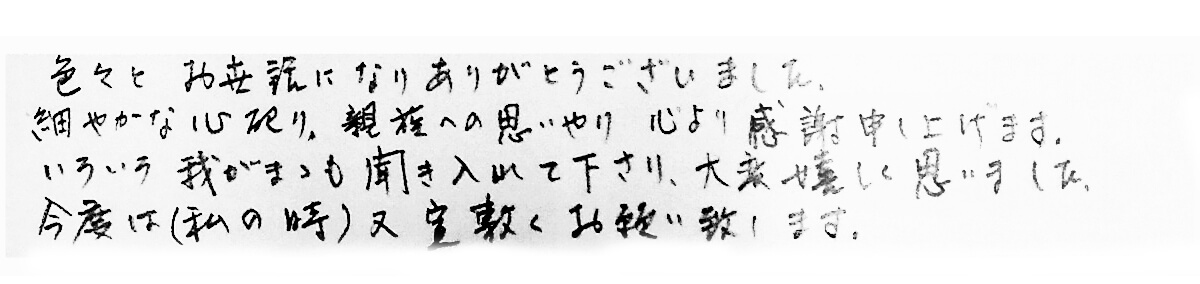 色々とお世話になりありがとうございました、
細やかな心配り、親族への思いやり 心より感謝申し上げます。
いろいろ我がまゝも聞き入れて下さり、大変嬉しく思いました、
今度は(私の時)又宜敷くお願い致します。